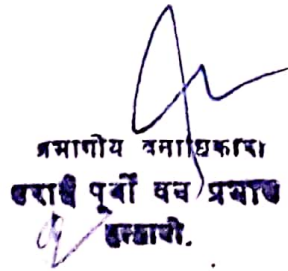 प्रभागीय वनाधिकारी
तराई पूर्वी वन प्रभाग
हल्द्वानी.